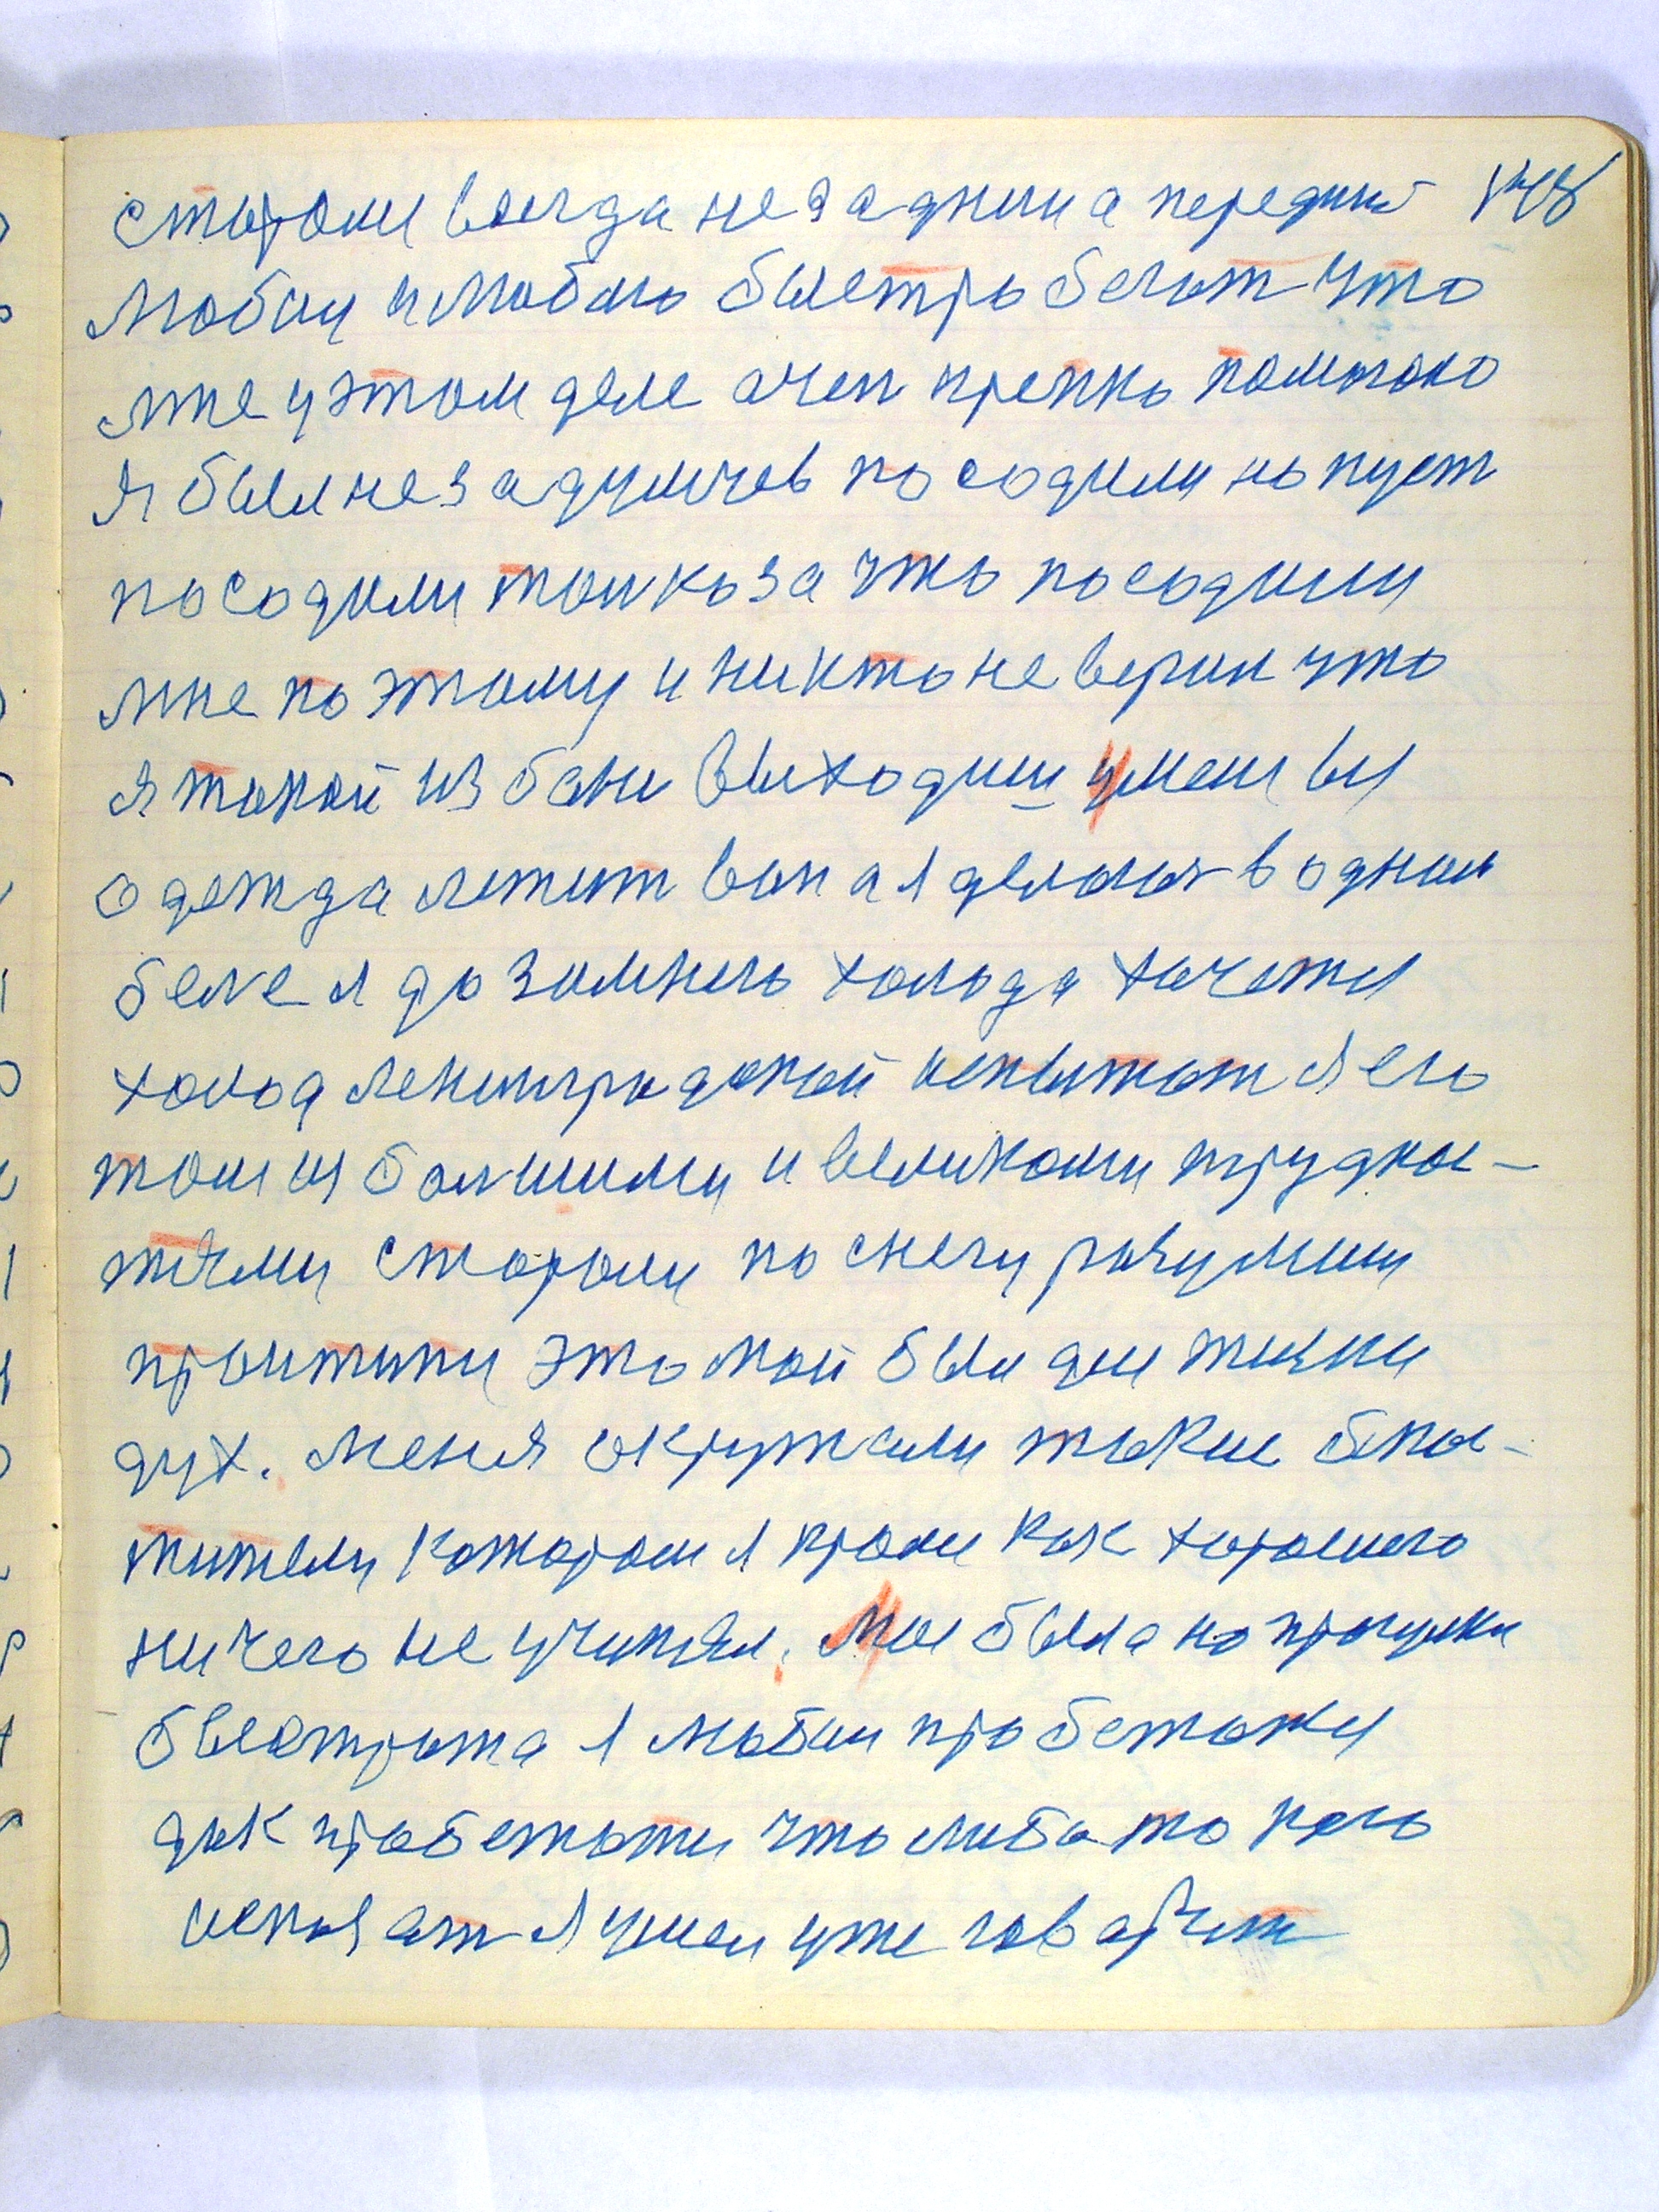 старом всегда не задним а передним 148
Любил и люблю быстро бегат что
мне у этом деле очен крепко помогало
Я был не задумчев посодили но пуст
посодили толко за что посодили
мне поэтому и никто не верил что
я такой из бани выходиш умеш вы
одежда летит вон а я делаюсь в одном
беле я до зимнего холода хочетси
холод ленинградской испытат я его
там из болшими и великоми труднос-
тями старом по снегу разумши
практики это мой был для жизни
дух. Меня окружали такие блю-
тители котором я кроме как хорошего
ничего не учинял. Мне была на прогулки
быстрота я любил пробежаки
дак пробежати что либо то кого
искат я умел уже говарит